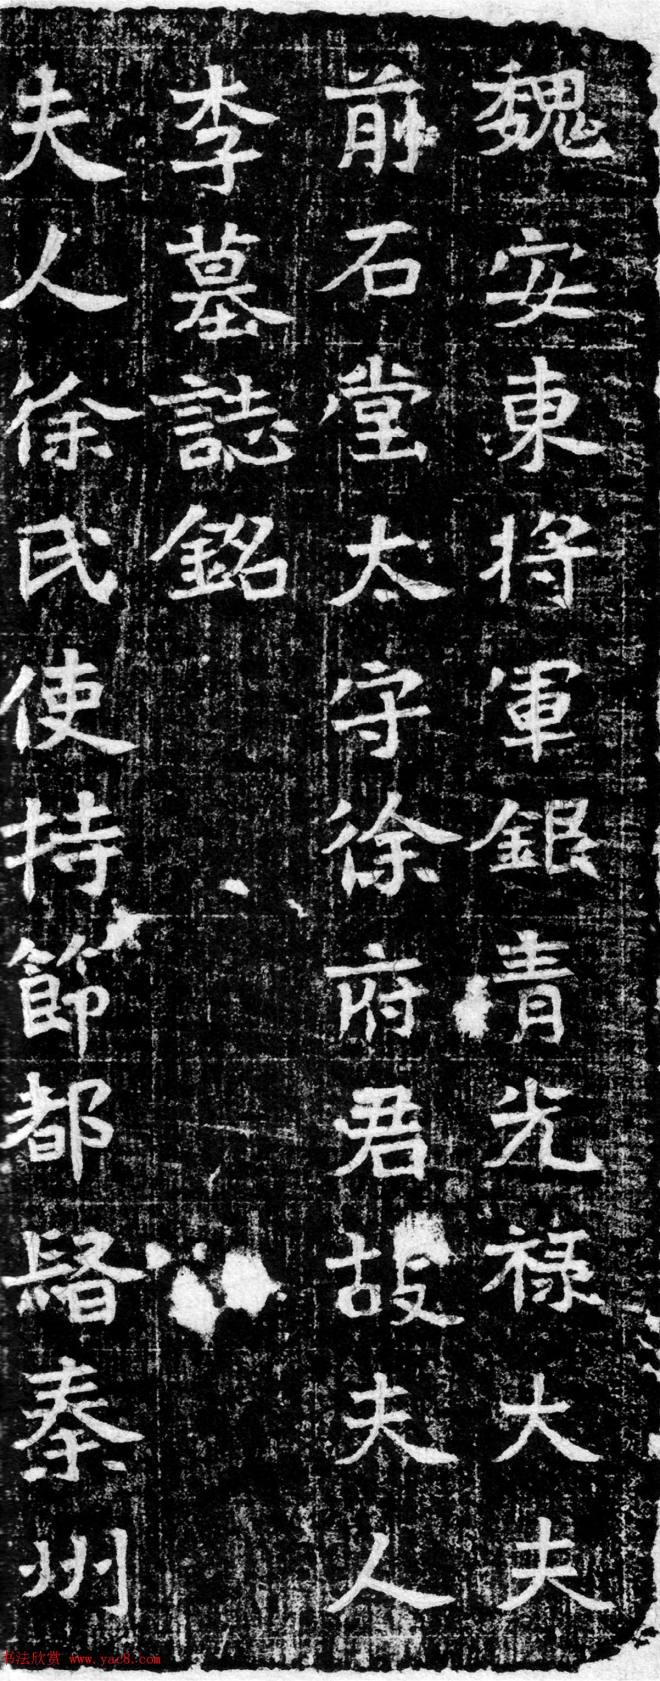 魏安東将軍銀青光禄大夫
前石堂太守徐府君故夫人
李墓誌銘
夫人徐氏使持節都督秦州
书法欣赏 www.yac8.com